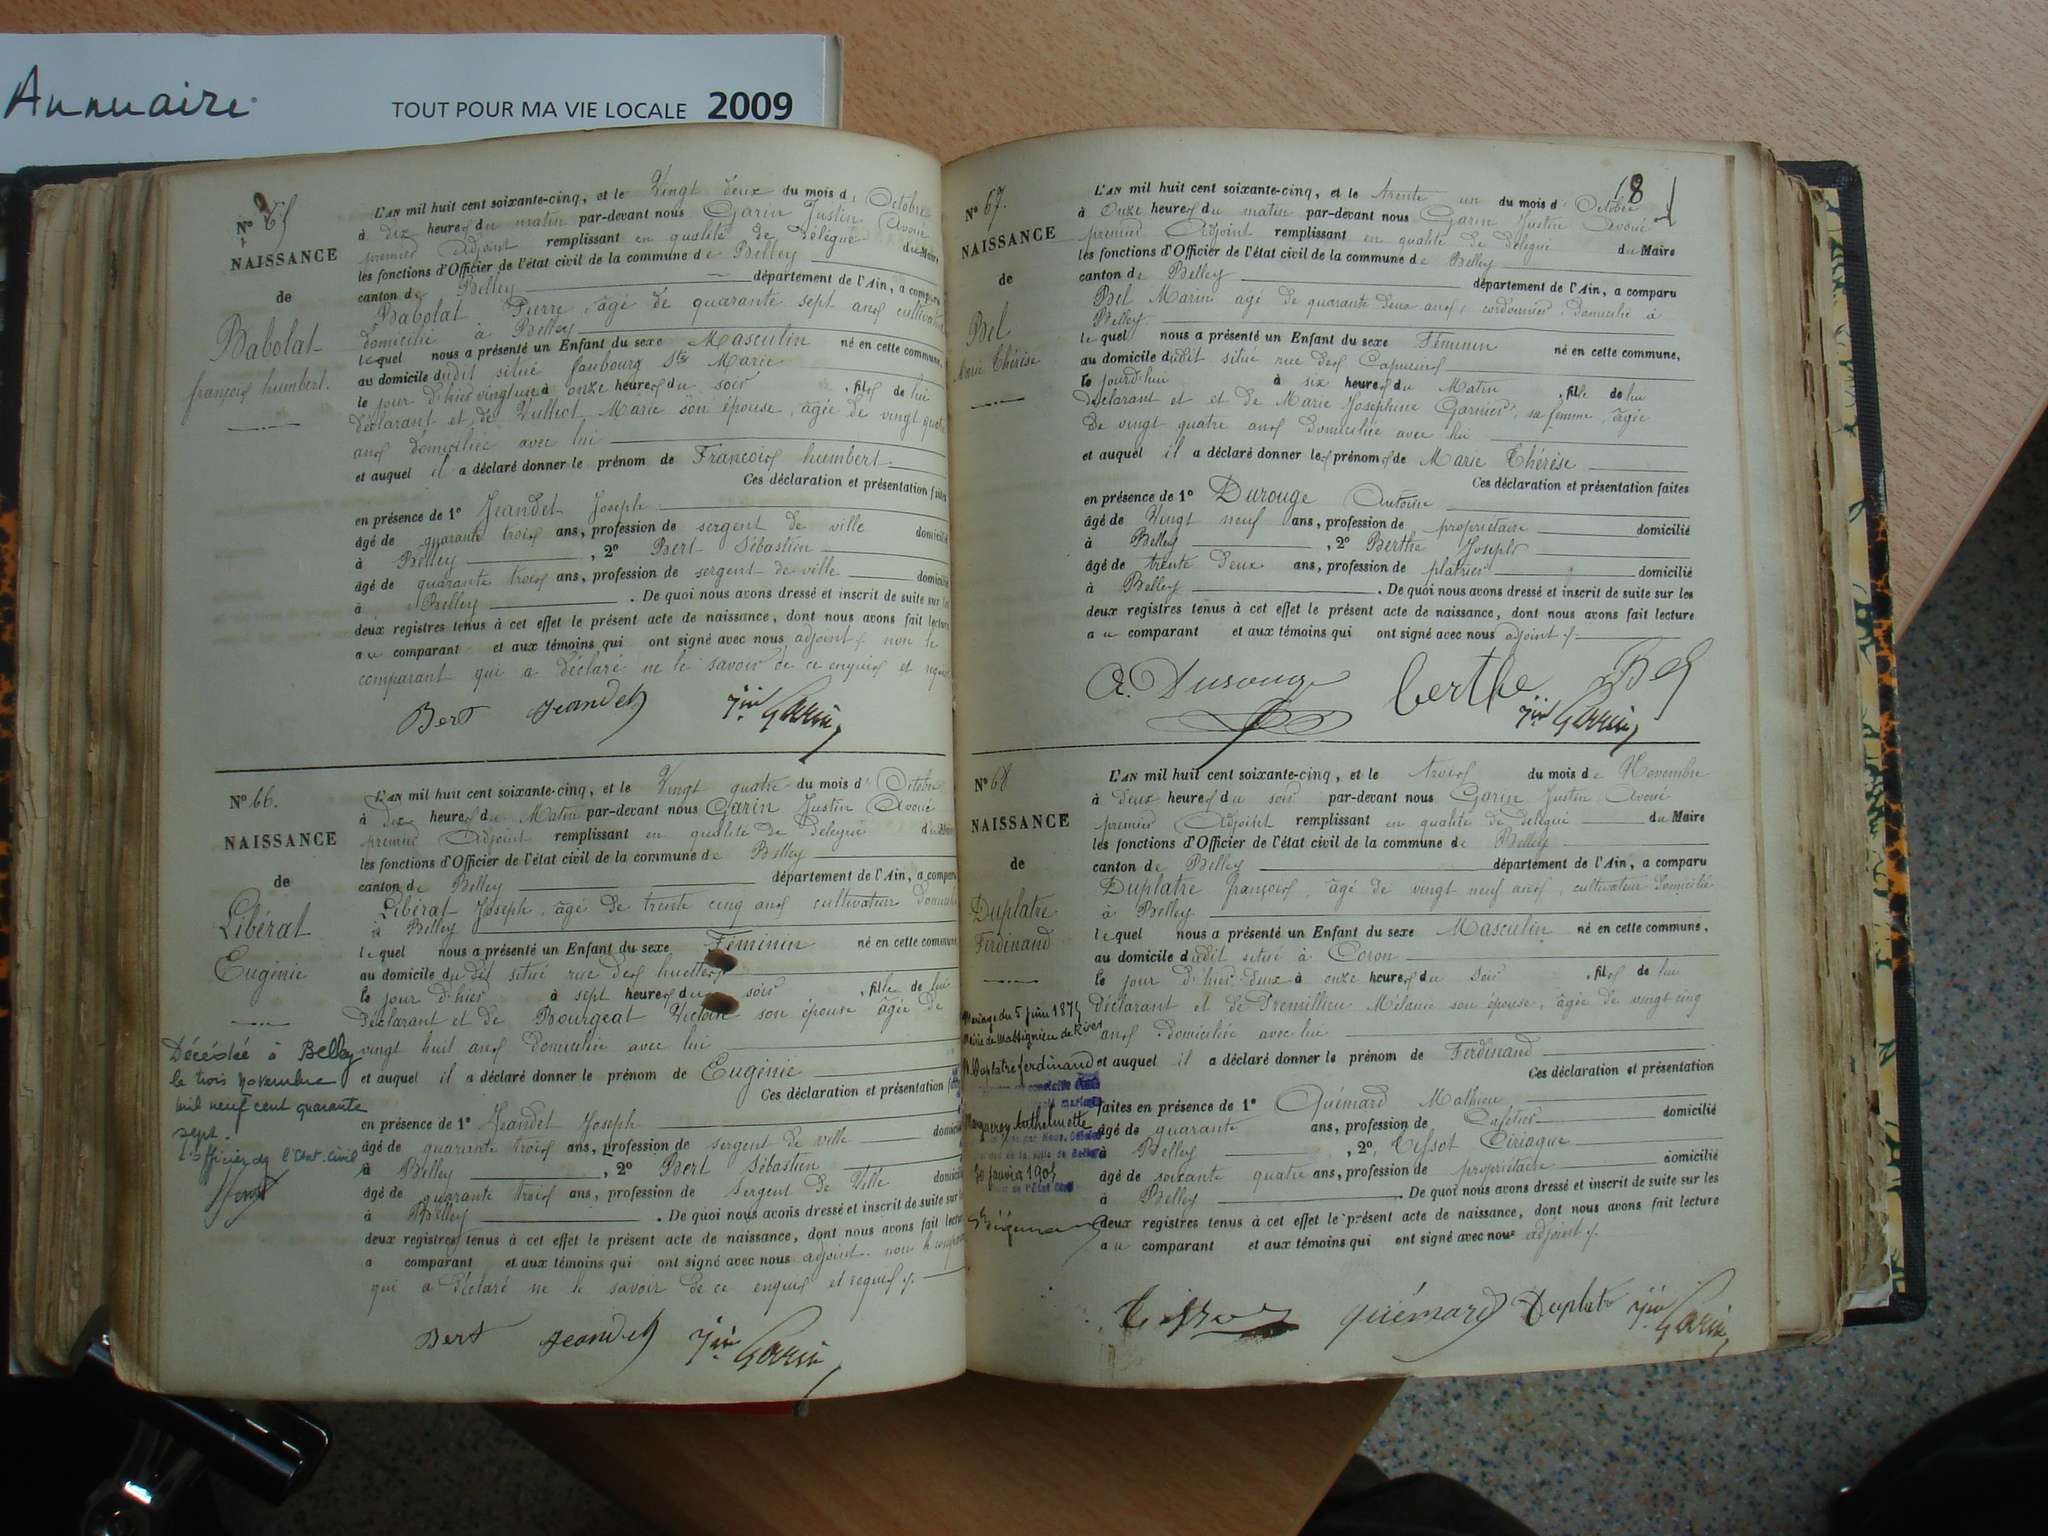 Annuaire
TOUT POUR MA VIE LOCALE 2009
Nº 65
NAISSANCE
de
Babolat
françois humbert.
L'AN mil huit cent soixante-cinq, et le Vingt deux du mois d' Octobre
à dix heures du matin par-devant nous Garin Justin Avoué
premier Adjoint remplissant en qualité de délégué du Maire
les fonctions d'Officier de l'état civil de la commune de Belley
canton de Belley département de l'Ain, a comparu
Babolat Pierre, âgé de quarante sept ans cultivateur
domicilié à Belley
lequel nous a présenté un Enfant du sexe Masculin né en cette commune,
au domicile dudit situé faubourg Ste Marie
le jour d'hier vingt un à onze heures du soir, fils de lui
déclarant et de Marie son épouse, âgée de vingt quatre
ans domiciliée avec lui
et auquel il a déclaré donner le prénom de François humbert.
Ces déclaration et présentation faites
en présence de 1º Jeandet Joseph
âgé de quarante trois ans, profession de sergent de ville domicilié
à Belley, 2º Bert Sébastien
âgé de quarante trois ans, profession de sergent de ville domicilié
à Belley. De quoi nous avons dressé et inscrit de suite sur les
deux registres tenus à cet effet le présent acte de naissance, dont nous avons fait lecture
au comparant et aux témoins qui ont signé avec nous adjoint, non le
comparant qui a déclaré ne le savoir de ce enquis et requis
Bert Jeandet Jin Garin
Nº 66.
NAISSANCE
de
Libérat
Eugénie
Décédée à Belley
le trois novembre
mil neuf cent quarante
sept.
L'officier de l'Etat-civil
L'AN mil huit cent soixante-cinq, et le Vingt quatre du mois d' Octobre
à dix heures du Matin par-devant nous Garin Justin Avoué
premier Adjoint remplissant en qualité de délégué du Maire
les fonctions d'Officier de l'état civil de la commune de Belley
canton de Belley département de l'Ain, a comparu
Libérat Joseph, âgé de trente cinq ans cultivateur domicilié
à Belley
lequel nous a présenté un Enfant du sexe Féminin né en cette commune,
au domicile dudit situé rue des
le jour d'hier à sept heures du soir, fille de lui
déclarant et de Bourgeat Victoire son épouse âgée de
vingt huit ans domiciliée avec lui
et auquel il a déclaré donner le prénom de Eugénie
Ces déclaration et présentation faites
en présence de 1º Jeandet Joseph
âgé de quarante trois ans, profession de sergent de ville domicilié
à Belley, 2º Bert Sébastien
âgé de quarante trois ans, profession de Sergent de Ville domicilié
à Belley. De quoi nous avons dressé et inscrit de suite sur les
deux registres tenus à cet effet le présent acte de naissance, dont nous avons fait lecture
a comparant et aux témoins qui ont signé avec nous adjoint, non le comparant
qui a déclaré ne le savoir de ce enquis et requis
Bert Jeandet Jin Garin
Nº 67.
NAISSANCE
de
Bel
Marie Thérèse
L'AN mil huit cent soixante-cinq, et le trente un du mois d' Octobre
à Onze heures du matin par-devant nous Garin Justin Avoué
premier Adjoint remplissant en qualité de délégué du Maire
les fonctions d'Officier de l'état civil de la commune de Belley
canton de Belley département de l'Ain, a comparu
Bel Marin âgé de quarante deux ans, cordonnier domicilié à
Belley
lequel nous a présenté un Enfant du sexe Féminin né en cette commune,
au domicile dudit situé rue des Capucins
le jourd'hui à six heures du Matin, fille de lui
déclarant et et de Marie Joséphine Garnier, sa femme, âgée
de vingt quatre ans domiciliée avec lui
et auquel il a déclaré donner les prénoms de Marie Thérèse
Ces déclaration et présentation faites
en présence de 1º Durouge Antoine
âgé de Vingt neuf ans, profession de propriétaire domicilié
à Belley, 2º Berthe Joseph
âgé de trente deux ans, profession de platrier domicilié
à Belley. De quoi nous avons dressé et inscrit de suite sur les
deux registres tenus à cet effet le présent acte de naissance, dont nous avons fait lecture
au comparant et aux témoins qui ont signé avec nous adjoint
A. Durouge berthe Bel
Jin Garin
Nº 68
NAISSANCE
de
Duplatre
Ferdinand
Mariage du 5 juin
Mairie de Massignieu de Rives
Duplatre ferdinand
Anthelmette
30 janvier
L'AN mil huit cent soixante-cinq, et le trois du mois de Novembre
à deux heures du soir par-devant nous Garin Justin Avoué
premier Adjoint remplissant en qualité de délégué du Maire
les fonctions d'Officier de l'état civil de la commune de Belley
canton de Belley département de l'Ain, a comparu
Duplatre françois, âgé de vingt neuf ans, cultivateur domicilié
à Belley
lequel nous a présenté un Enfant du sexe Masculin né en cette commune,
au domicile dudit situé à Coron
le jour d'hier deux à onze heures du soir, fils de lui
déclarant et de Tremillieu Mélanie son épouse, âgée de vingt cinq
ans domiciliée avec lui
et auquel il a déclaré donner le prénom de Ferdinand
Ces déclaration et présentation
faites en présence de 1º Quémard Mathieu
âgé de quarante ans, profession de Cafetier domicilié
à Belley, 2º Tissot Ciriaque
âgé de soixante quatre ans, profession de propriétaire domicilié
à Belley. De quoi nous avons dressé et inscrit de suite sur les
deux registres tenus à cet effet le présent acte de naissance, dont nous avons fait lecture
au comparant et aux témoins qui ont signé avec nous adjoint
Tissot quémard Duplatre Jin Garin